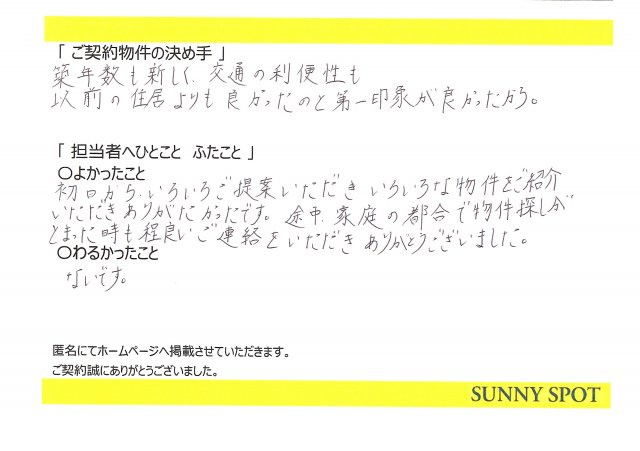 「 ご契約物件の決め手 」
築年数も新しく、交通の利便性も
以前の住居よりも良かったのと第一印象が良かったから。
「 担当者へひとこと ふたこと 」
○よかったこと
初回から、いろいろご提案いただき いろいろな物件をご紹介
いただきありがたかったです。途中、家庭の都合で物件探しが
とまった時も程良いご連絡をいただき ありがとうございました。
○わるかったこと
ないです。
匿名にてホームページへ掲載させていただきます。
ご契約誠にありがとうございました。
SUNNY SPOT